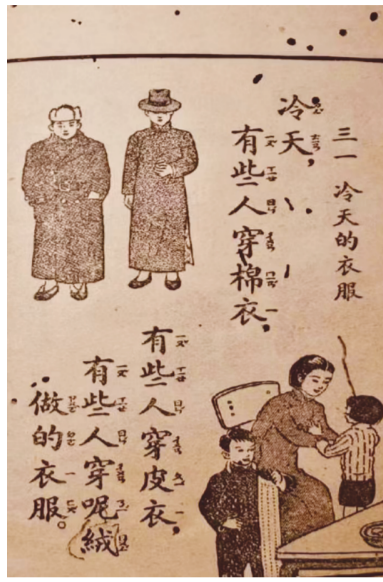 三一　冷天的衣服
冷天，
有些人穿棉衣，
有些人穿皮衣，
有些人穿呢絨
做的衣服。